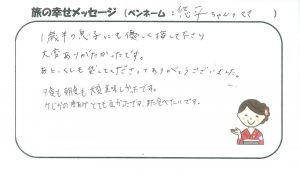 旅の幸せメッセージ (ペンネーム:悠平ちゃんママ)
1歳半の息子にも優しく接して下さり
大変ありがたかったです。
あと、くしも貸してくださってありがとうございました。
夕食も朝食も大変美味しかったです。
とても良かったです、また食べたいです。